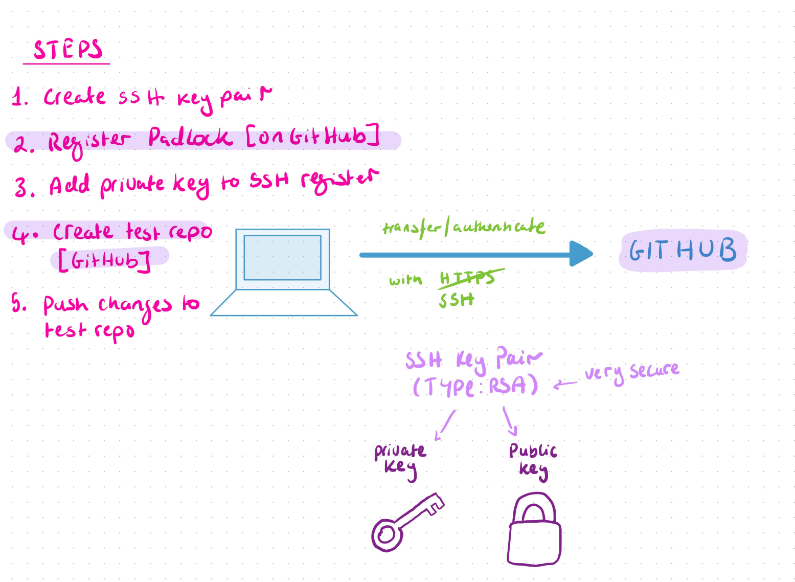 STEPS
1. Create SSH key pair
2. Register Padlock [on GitHub]
3. Add private key to SSH register
4. Create test repo
[GitHub]
5. Push changes to
test repo
transfer/authenticate
with HTTPS
SSH
GITHUB
SSH Key Pair
(TYPE: RSA)
very secure
private
key
Public
key